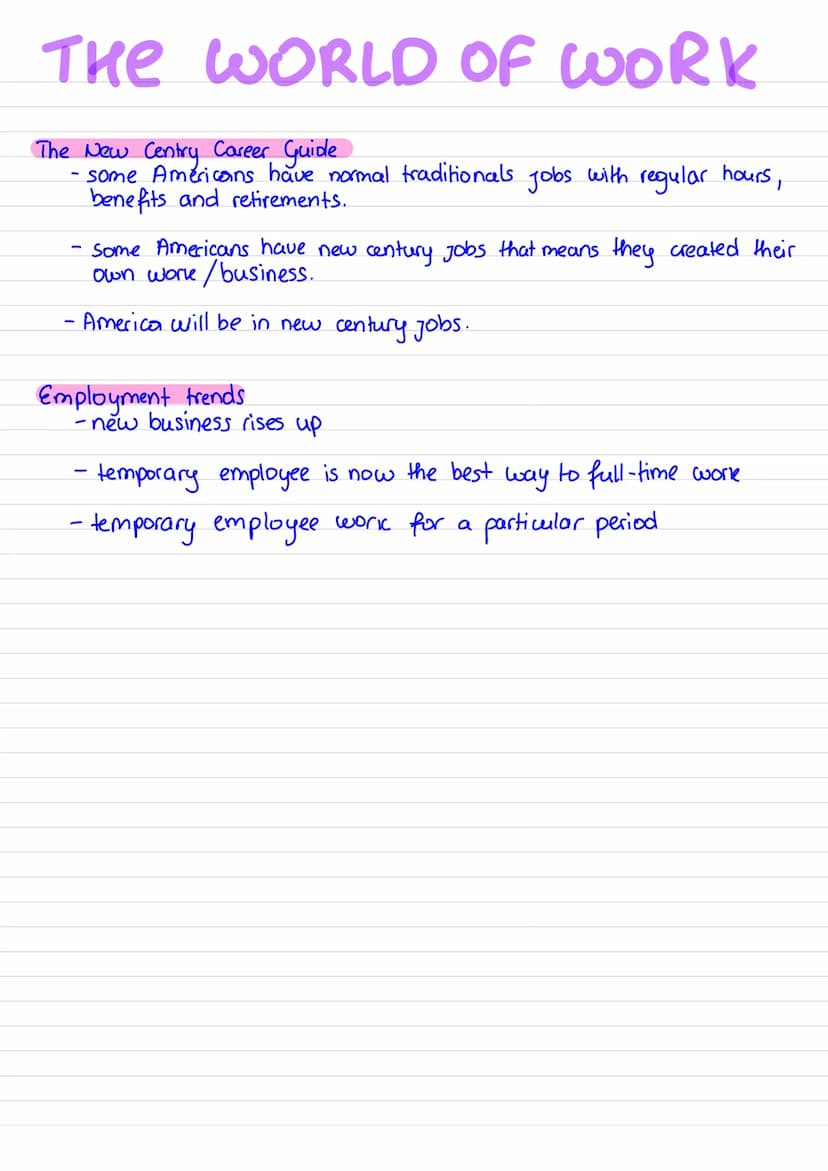 THE WORLD OF WORK
The New Centry Career Guide
- some Americans have normal traditionals jobs with regular hours,
benefits and retirements.
- some Americans have new century jobs that means they created their
own work/business.
- America will be in new century jobs.
Employment trends
- new business rises up
- temporary employee is now the best way to full-time work
- temporary employee work for a particular period